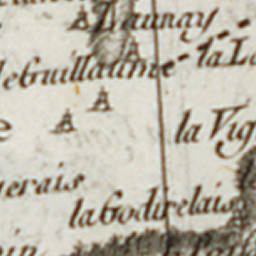 Launay
la L
leGuillaume
la Vig
erais
la Godirelais